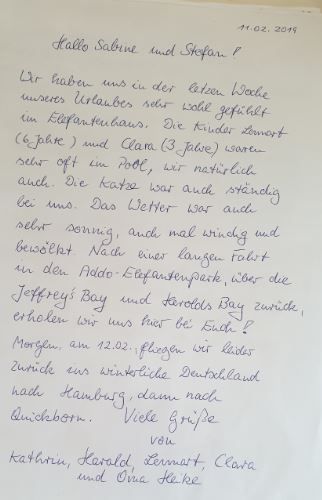 11.02.2019
Hallo Sabine und Stefan!
Wir haben uns in der letzen Woche
unseres Urlaubes sehr wohl gefühlt
im Elefantenhaus. Die Kinder Lennart
(6 Jahre) und Clara (3 Jahre) waren
sehr oft im Pool, wir natürlich
auch. Die Katze war auch ständig
bei uns. Das Wetter war auch
sehr sonnig, auch mal windig und
bewölkt. Nach einer langen Fahrt
in den Addo-Elefantenpark, über die
Jeffrey's Bay und Herolds Bay zurück,
erholen wir uns hier bei Euch!
Morgen, am 12.02., fliegen wir leider
zurück ins winterliche Deutschland
nach Hamburg, dann nach
Quickborn. Viele Grüße
von
Kathrin, Harald, Lennart, Clara
und Oma Heike